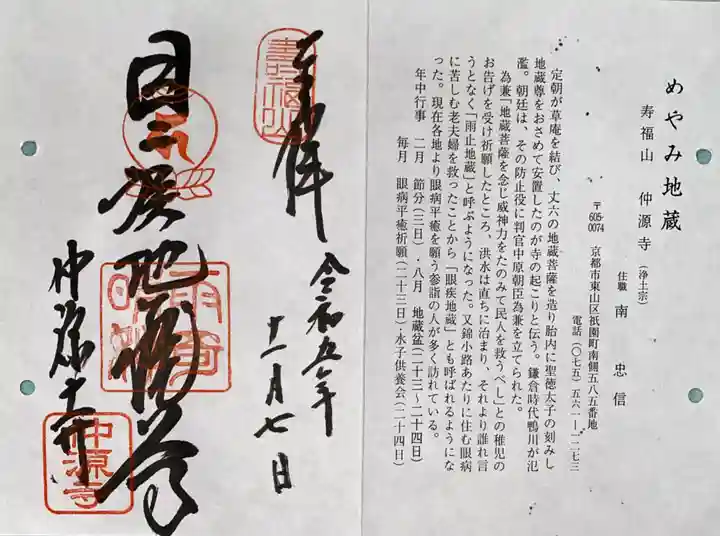 めやみ地蔵
寿福山　仲源寺（浄土宗）
住職　南　忠信
〒605-0074　京都市東山区祇園町南側五八五番地
電話（〇七五）五六一―一二七三
定朝が草庵を結び、丈六の地蔵菩薩を造り胎内に聖徳太子の刻みし
地蔵尊をおさめて安置したのが寺の起こりと伝う。鎌倉時代鴨川が氾
濫。朝廷は、その防止役に判官中原朝臣為兼を立てられた。
為兼「地蔵菩薩を念じ威神力をたのみて民人を救うべし」との稚児の
お告げを受け祈願したところ、洪水は直ちに治まり、それより誰れ言
うとなく「雨止地蔵」と呼ぶようになった。又錦小路あたりに住む眼病
に苦しむ老夫婦を救ったことから「眼疾地蔵」とも呼ばれるようにな
った。現在各地より眼病平癒を願う参詣の人が多く訪れている。
年中行事　二月　節分（三日）・八月　地蔵盆（二十三〜二十四日）
毎月　眼病平癒祈願（二十三日）・水子供養会（二十四日）
壽福山
奉拝　令和五年
十一月七日
地蔵尊
仲源寺
仲源寺